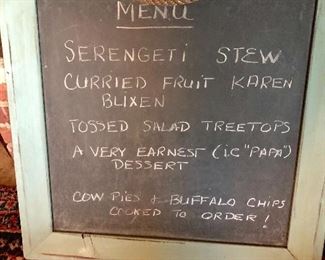 MENU
SERENGETI STEW
CURRIED FRUIT KAREN
BLIXEN
TOSSED SALAD TREETOPS
A VERY EARNEST (i.e "PAPA")
DESSERT
COW PIES & BUFFALO CHIPS
COOKED TO ORDER!